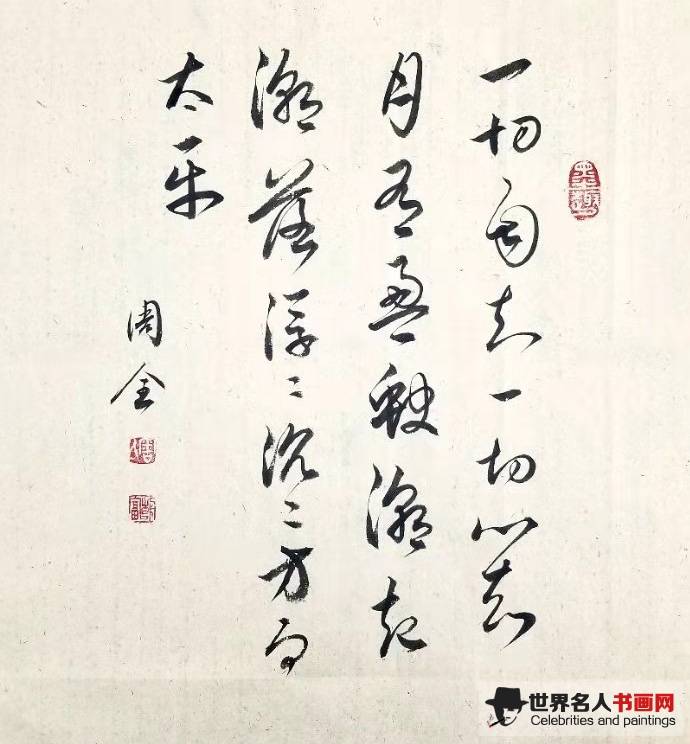 一切自知一切心知
月有盈缺潮起
潮落浮〻沉〻方为
太平
周全
世界名人书画网
Celebrities and paintings